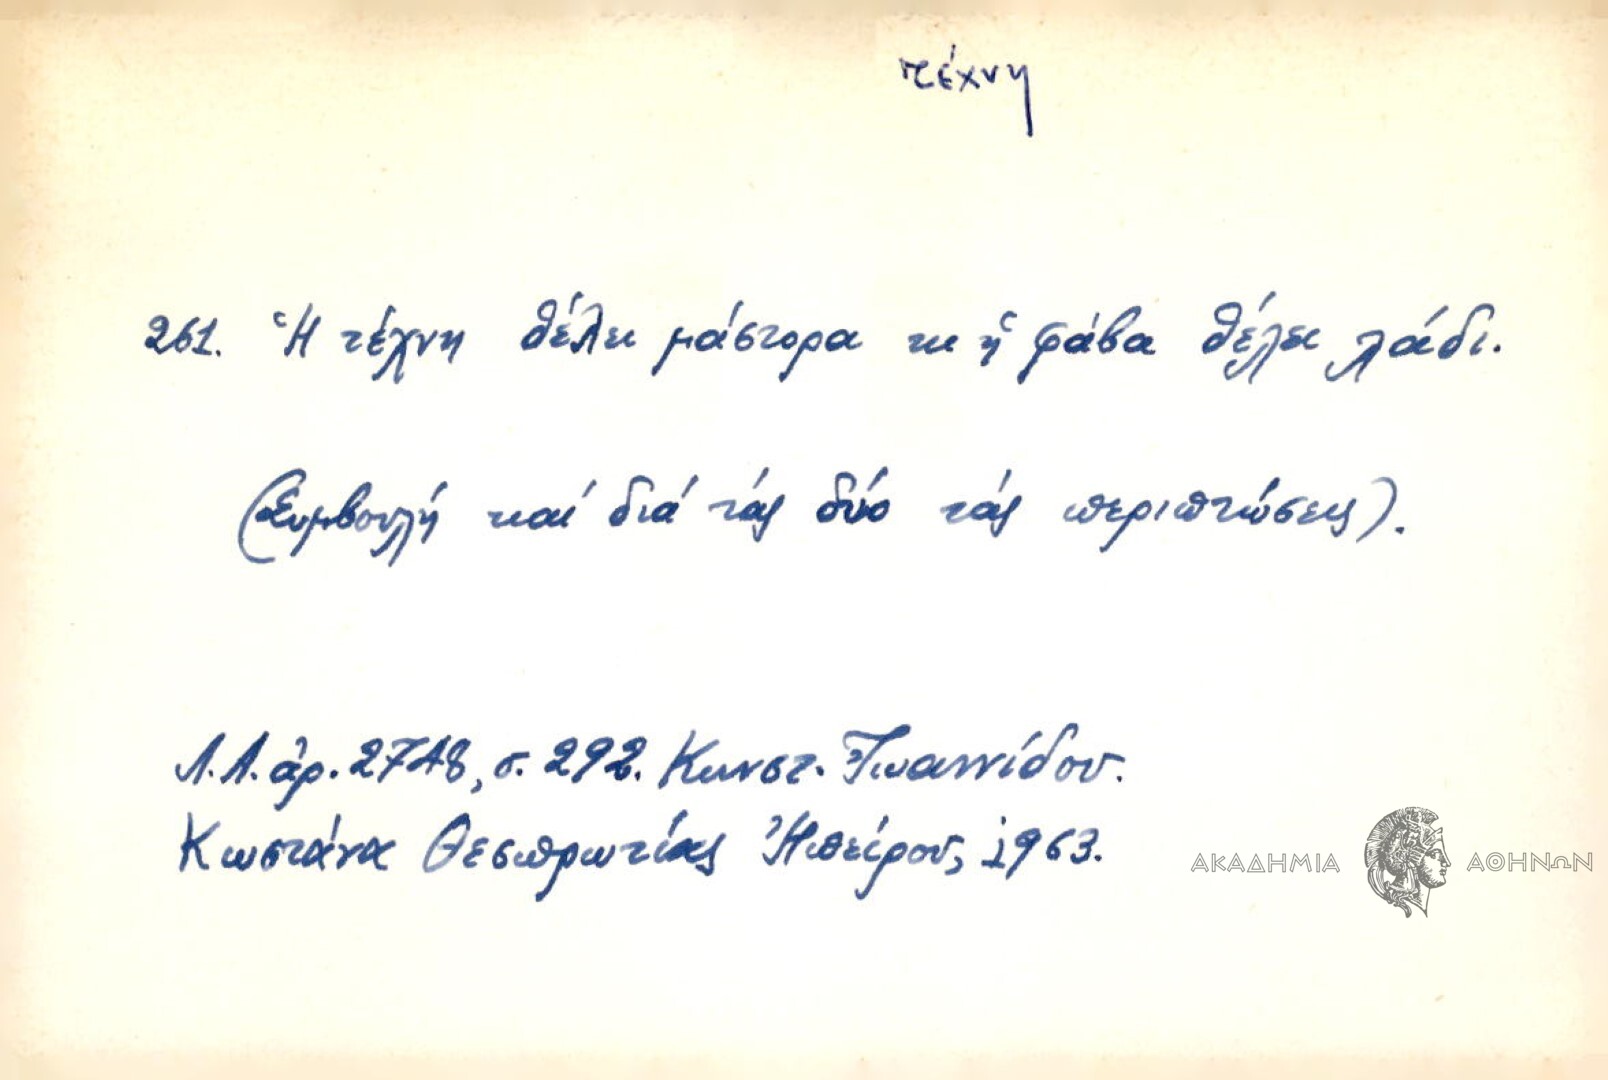 τέχνη
261. Ἡ τέχνη θέλει μάστορα κι ἡ φάβα θέλει λάδι.
(Συμβουλή καί διά τάς δύο τάς περιπτώσεις).
Λ.Α. ἀρ. 2748, σ. 292. Κωνστ. Ἰωαννίδου.
Κωστάνα Θεσπρωτίας Ἠπείρου, 1963.
ΑΚΑΔΗΜΙΑ ΑΘΗΝΩΝ